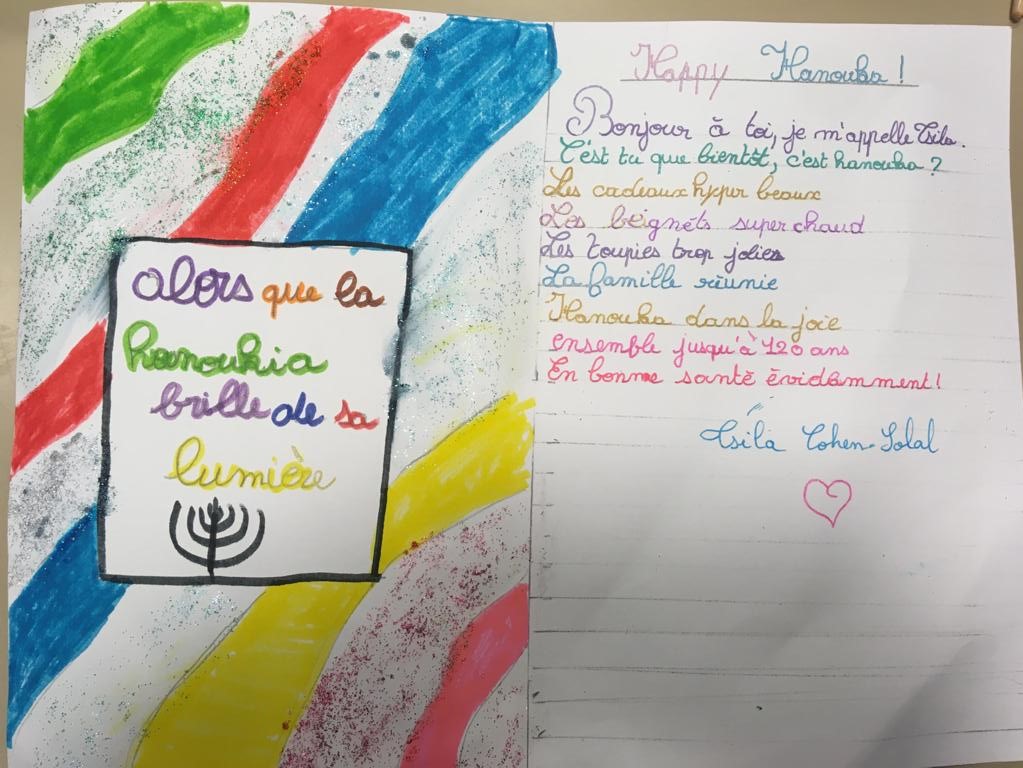 alors que la
hanoukia
brille de sa
lumière
Happy Hanouka !
Bonjour à toi, je m'appelle Tsila.
C'est tu que bientôt, c'est hanouka ?
Les cadeaux hyper beaux
Les beignéts super chaud
Les toupies trop jolies
La famille réunie
Hanouka dans la joie
ensemble jusqu'à 120 ans
En bonne santé évidamment !
Tsila Cohen-Solal